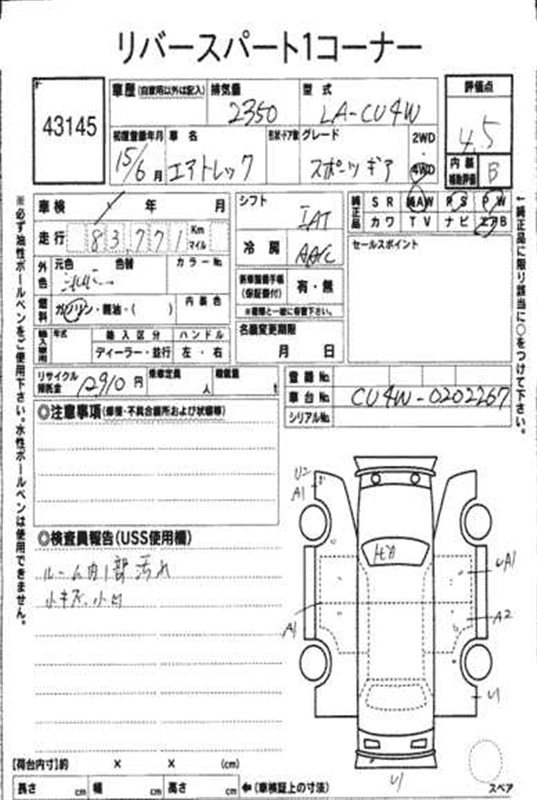 リバースパート1コーナー
43145
車歴(自家用以外は記入) 排気量 型式 評価点
2350 LA-CU4W 4.5
初度登録年月 車名 形状・ドア数 グレード 2WD
15/6月 エアトレック スポーツギア 4WD
内装補助評価 B
車検 年 月
走行 83,771 Km マイル
外色 元色 色替 カラーNo.
燃料 ガソリン・軽油・( ) 内装色
輸入車用 年式 輸入区分 ハンドル
ディーラー・並行 左・右
シフト IAT
冷房 AAC
新車整備手帳(保証書付) 有・無
※書類と一緒に保管下さい。
名義変更期限
月 日
純正品 SR 純AW PS PW
カワ TV ナビ エアB
セールスポイント
リサイクル預託金 12910円 乗車定員 人 積載量 t
登録No.
車台No. CU4W-0202267
シリアルNo.
◎注意事項(修理・不具合箇所および状態等)
◎検査員報告(USS使用欄)
ルーム内1部汚れ
小キズ、小凹
U2
A1
A1
A2
A1
U1
U1
スペア
【荷台内寸】約 × × (cm)
長さ cm 幅 cm 高さ cm ←(車検証上の寸法)
※必ず油性ボールペンをご使用下さい。水性ボールペンは使用できません。
←純正品に限り該当に○をつけて下さい。